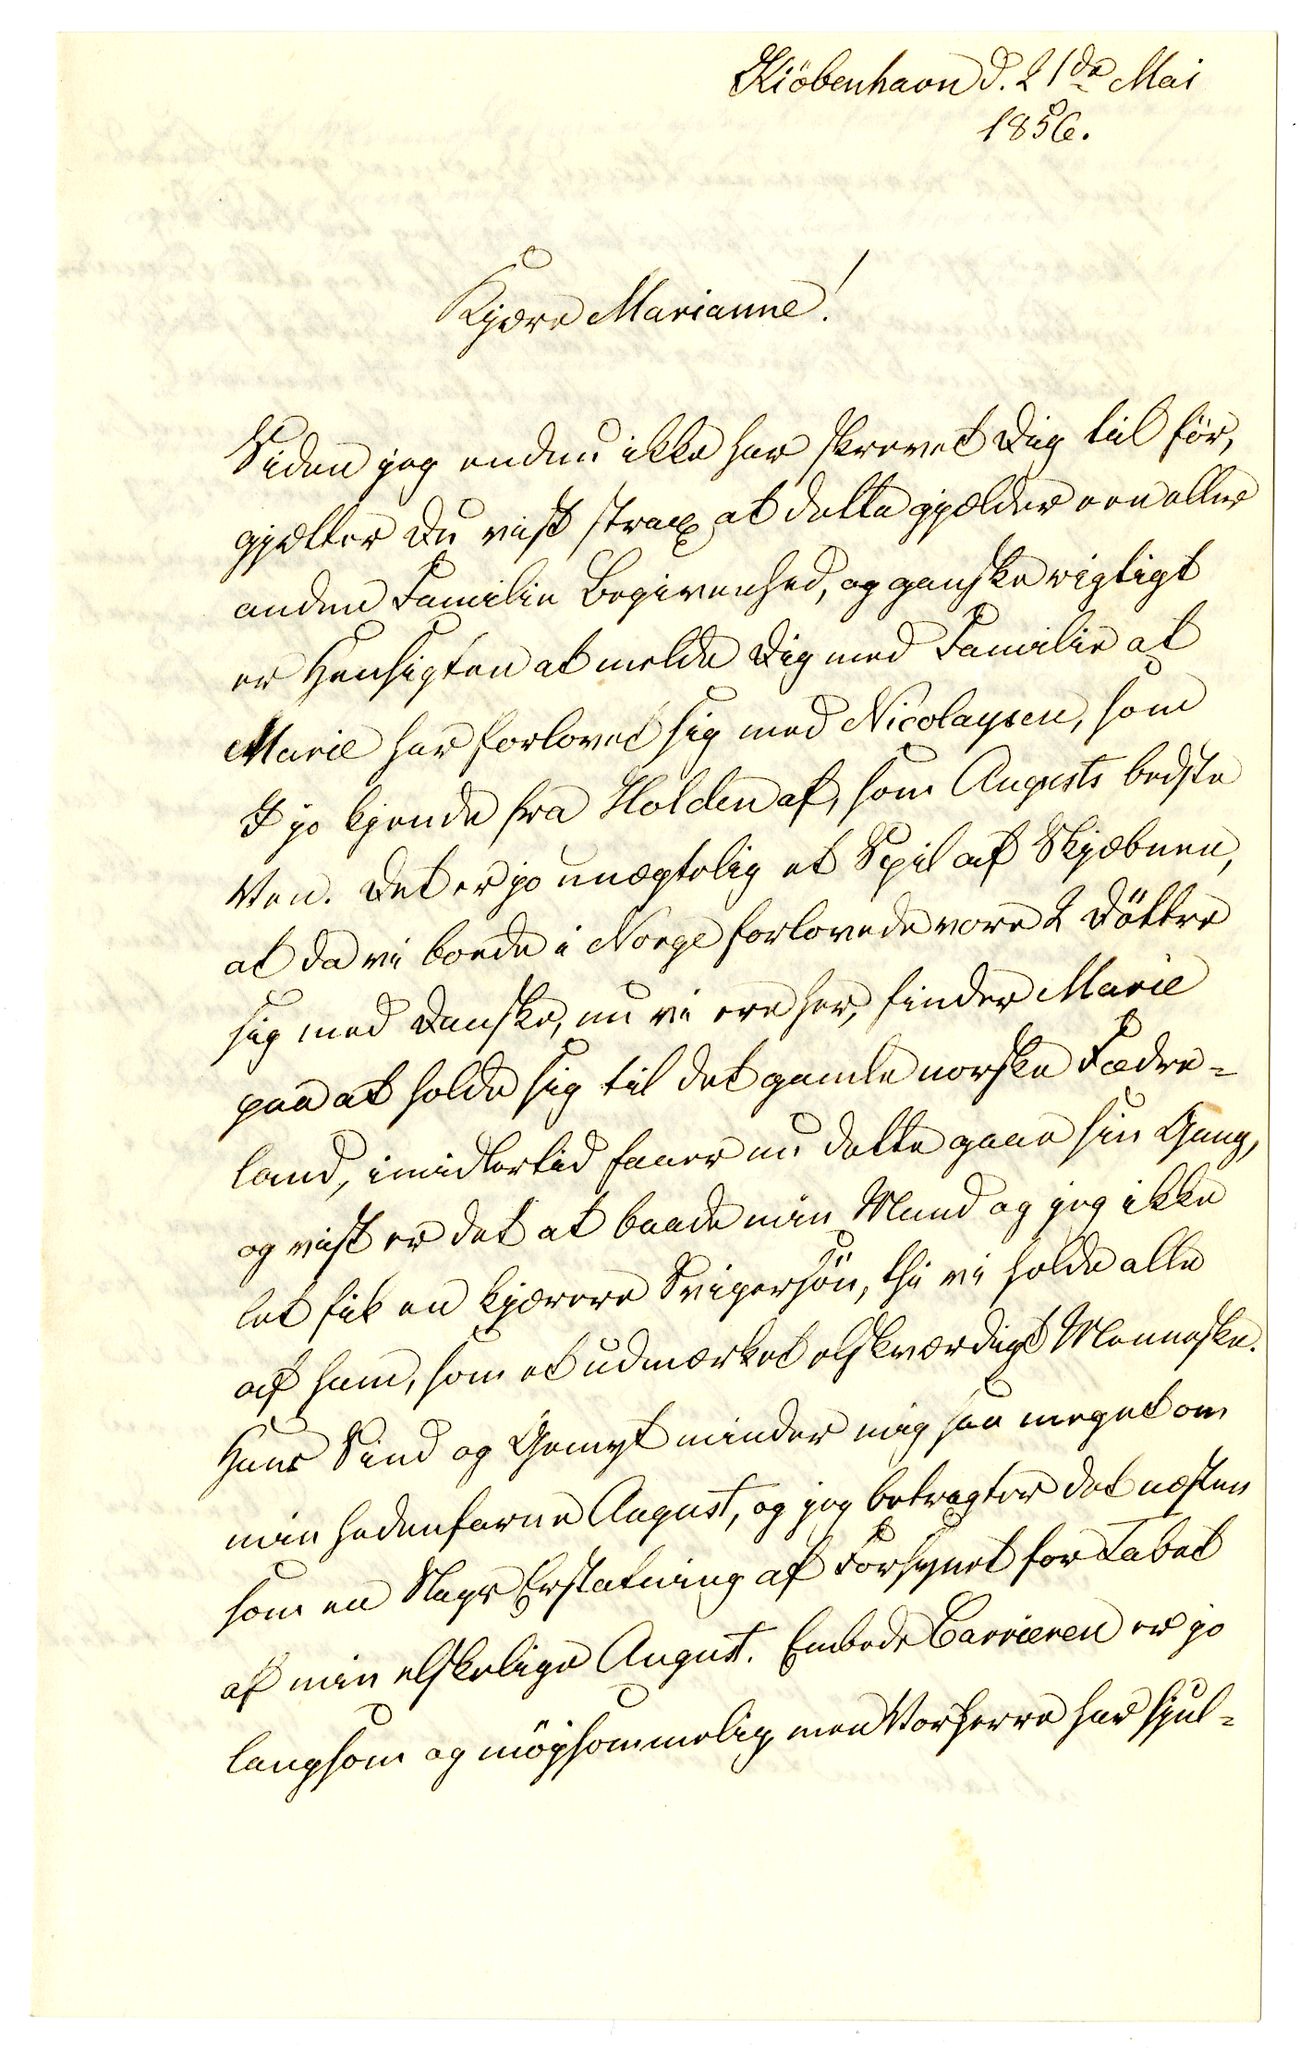 Kiöbenhavn d. 21de Mai
1856.
Kjære Marianne!
Siden jeg endnu ikke har skrevet Dig til för,
gjætter Du vist strax at dette gjælder een eller
anden Familie Begivenhed, og ganske rigtigt
er Hensigten at melde Dig med Familie at
Marie har forlovet sig med Nicolaysen, som
I jo kjende fra Holden af, som Augusts bedste
Ven. Det er jo unægtelig et Spil af Skjæbnen,
at da vi boede i Norge forlovede vore 2 Döttre
sig med Danske, nu vi ere her, finder Marie
paa at holde sig til det gamle norske Fædre-
land, imidlertid faaer nu dette gaae sin Gang,
og vist er det at baade min Mand og jeg ikke
let fik en kjærere Svigersön, thi vi holde alle
af ham, som et udmærket elskværdigt Menneske.
Hans Sind og Gemyt minder mig saa meget om
min hedenfarne August, og jeg betragter det næsten
som en Slags Erstatning af Forsynet for Tabet
af min elskelige August. Embeds Carrieren er jo
langsom og möjsommelig men Vorherre har hjul-